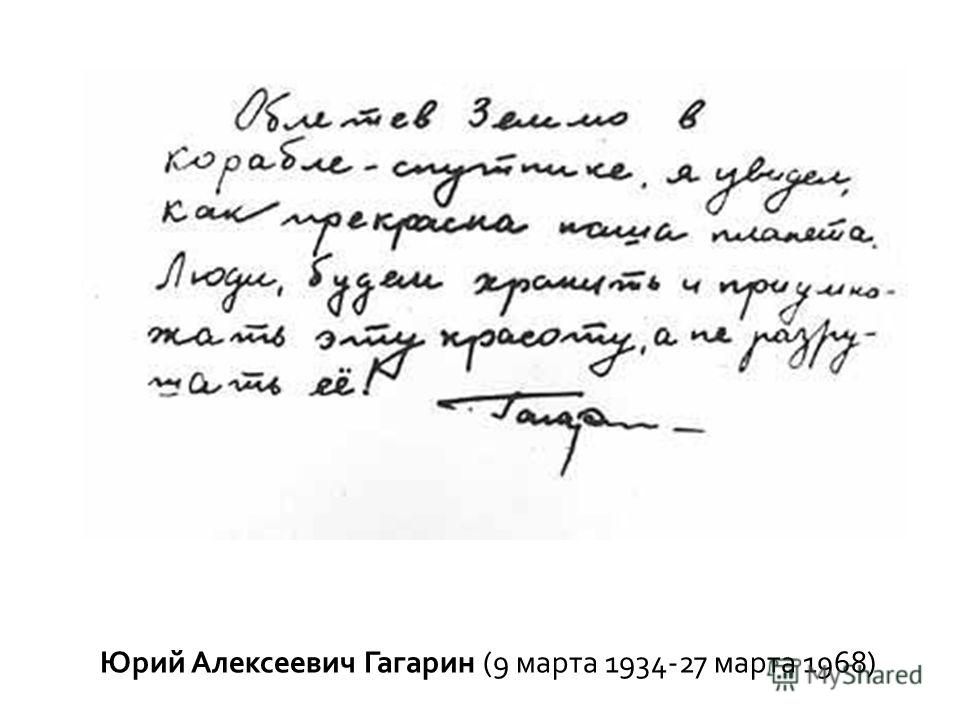 Облетев Землю в
корабле-спутнике, я увидел,
как прекрасна наша планета.
Люди, будем хранить и приумно-
жать эту красоту, а не разру-
шать её!
Гагарин
Юрий Алексеевич Гагарин (9 марта 1934-27 марта 1968)
MyShared